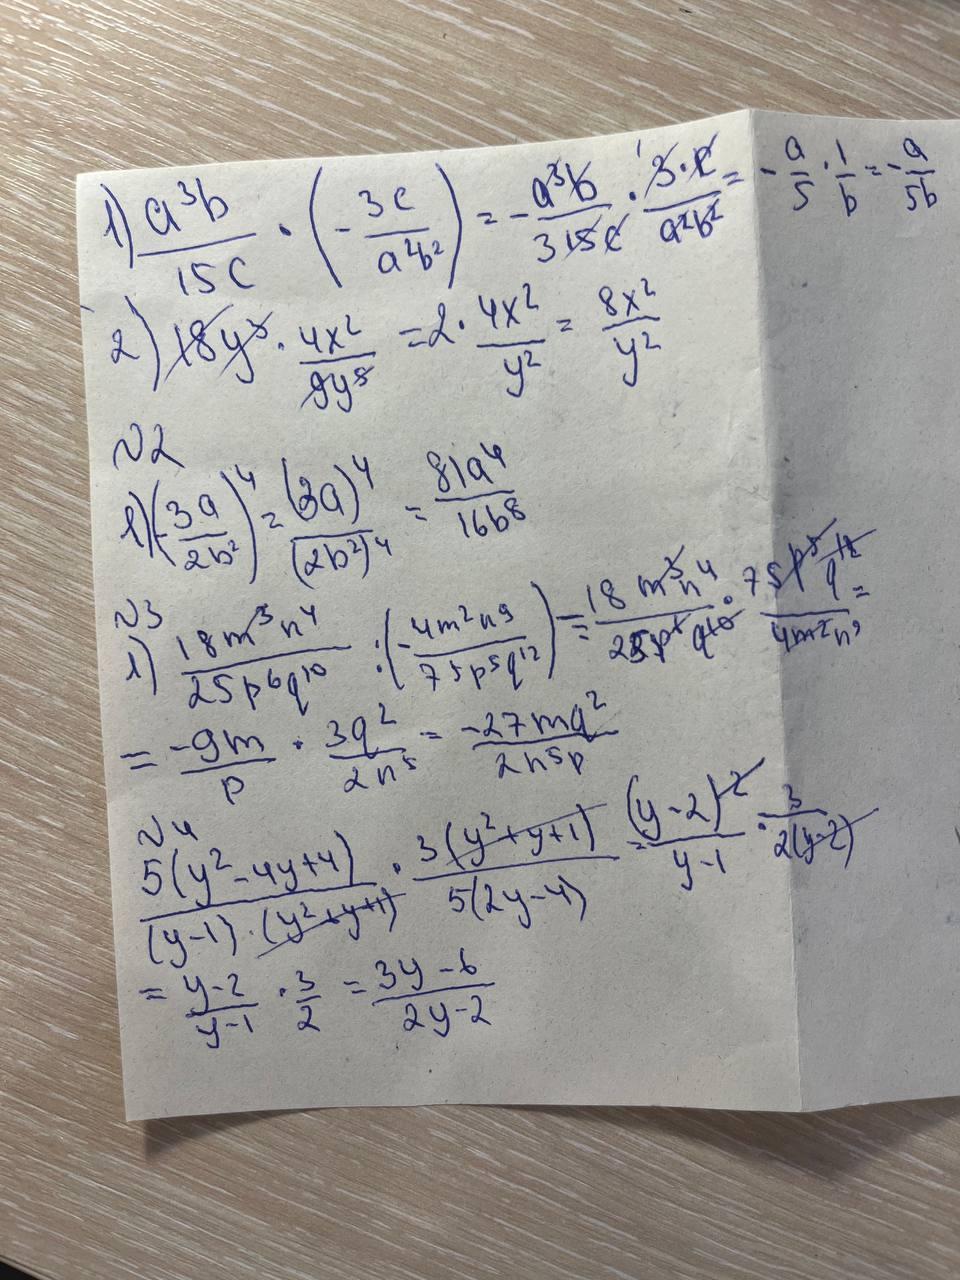 1) a³b/15c · (- 3c/a²b²) = - a³b/315c · ¹3·c/a²b² = - a/5 · 1/b = - a/5b
2) 18y³ · 4x²/9y⁵ = 2 · 4x²/y² = 8x²/y²
№2
1) (- 3a/2b²)⁴ = (3a)⁴/(2b²)⁴ = 81a⁴/16b⁸
№3
1) 18m³n⁴/25p⁶q¹⁰ : (- 4m²n⁹/75p⁵q¹²) = 18m³n⁴/25p⁶q¹⁰ · 75p⁵q¹²/4m²n⁹ =
= -9m/p · 3q²/2n⁵ = -27mq²/2n⁵p
№4
5(y²-4y+4)/(y-1)·(y²+y+1) · 3(y²+y+1)/5(2y-4) = (y-2)²/y-1 · 3/2(y-2)
= y-2/y-1 · 3/2 = 3y-6/2y-2